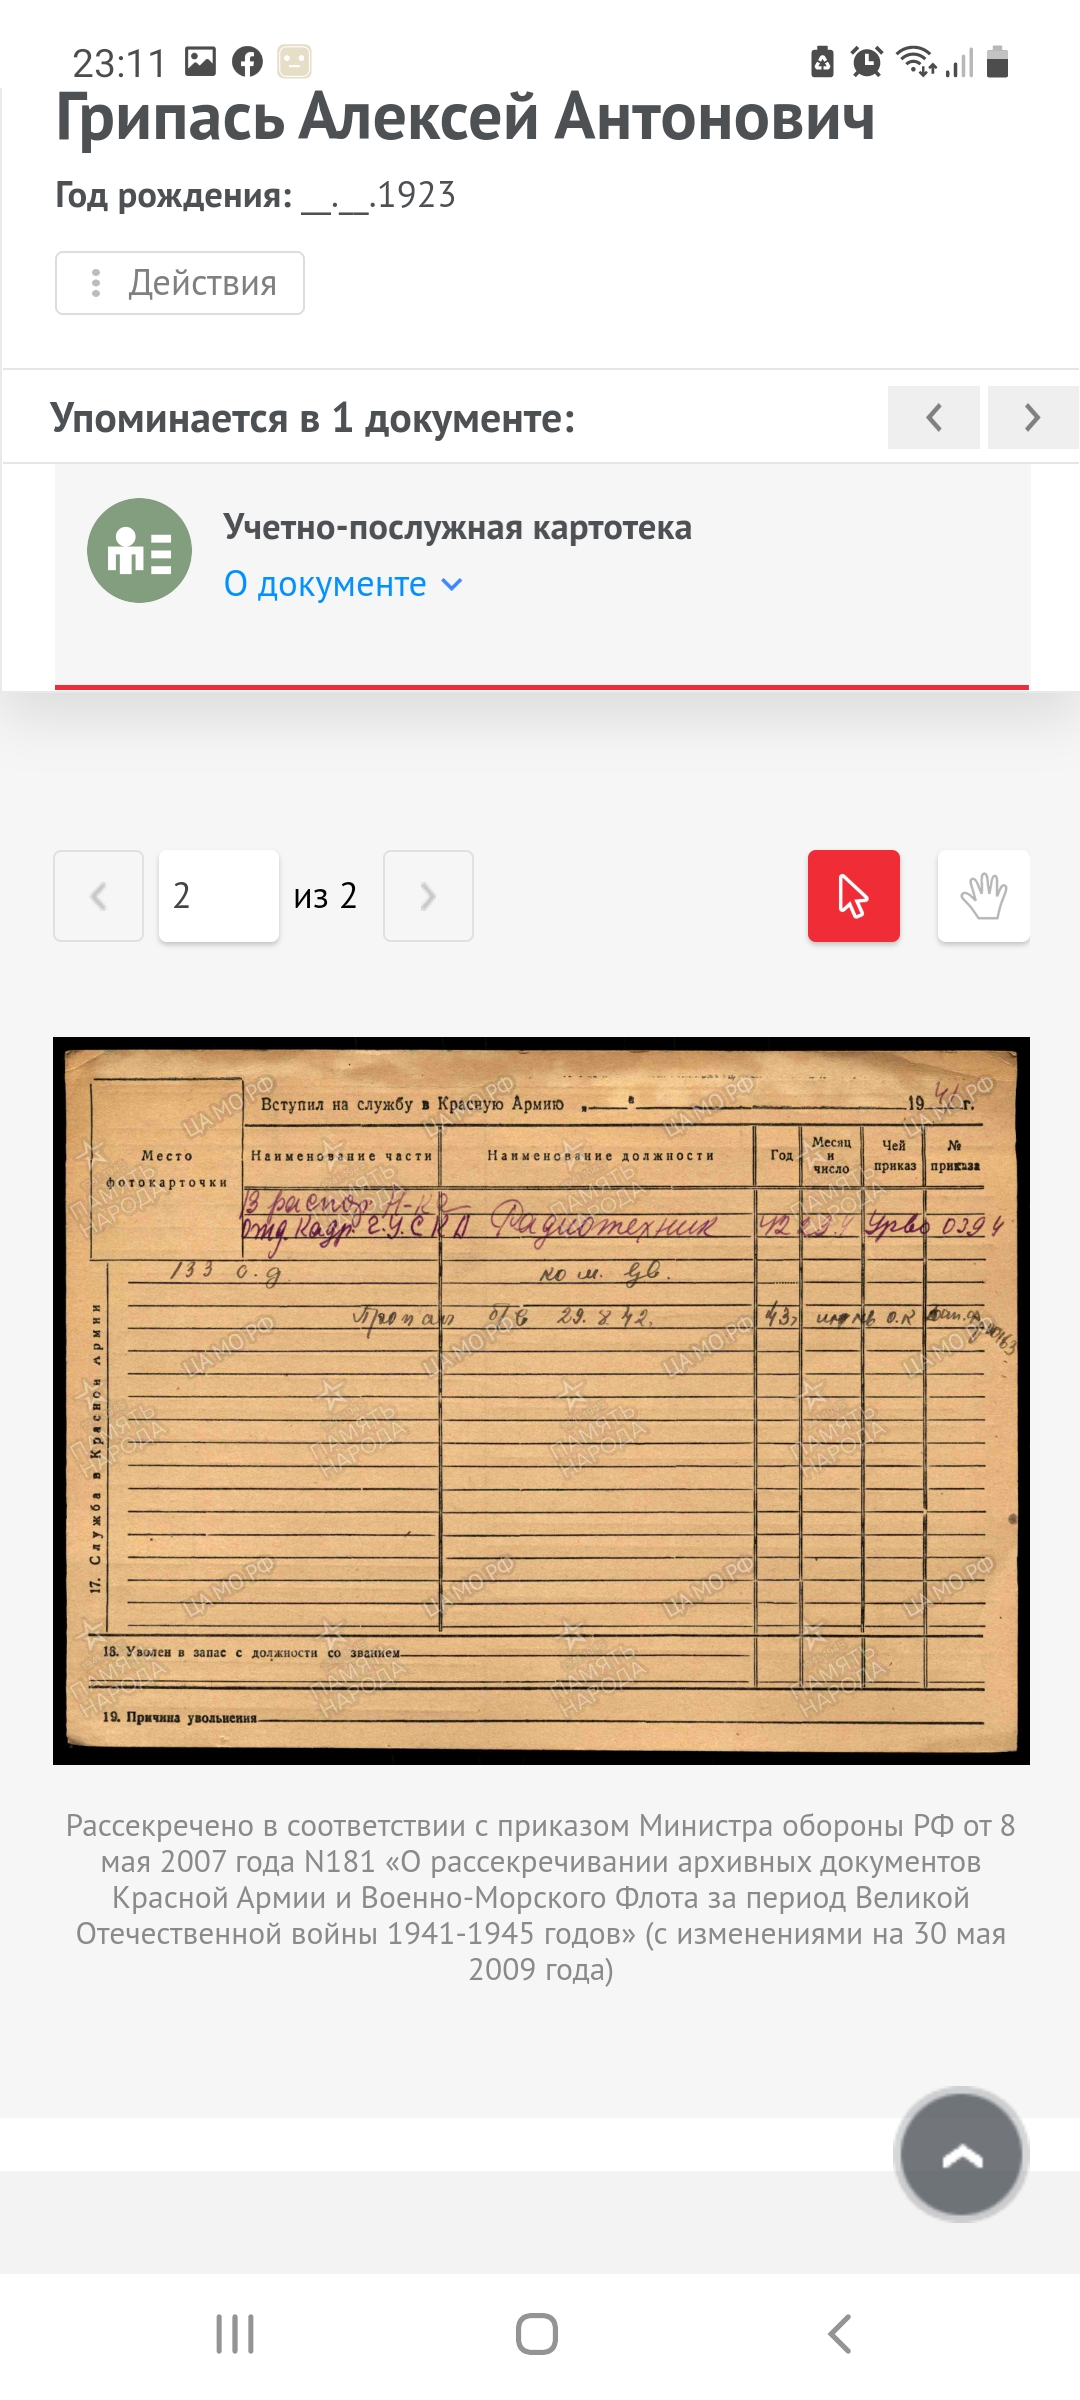 23:11
Грипась Алексей Антонович
Год рождения: __.__.1923
Действия
Упоминается в 1 документе:
Учетно-послужная картотека
О документе
2 из 2
Вступил на службу в Красную Армию „___“ 1941 г.
Место фотокарточки
Наименование части
Наименование должности
Год
Месяц и число
Чей приказ
№ приказа
В распор. Н-ка
Отд. Кадр. Г.У.С К А Радиотехник 42 29.4 Урво 0394
133 с.д ком. вв.
Пропал б/в 29.8.42. 43г О.К
17. Служба в Красной Армии
18. Уволен в запас с должности со званием
19. Причина увольнения
ЦАМО.РФ
ПАМЯТЬ НАРОДА
Рассекречено в соответствии с приказом Министра обороны РФ от 8
мая 2007 года N181 «О рассекречивании архивных документов
Красной Армии и Военно-Морского Флота за период Великой
Отечественной войны 1941-1945 годов» (с изменениями на 30 мая
2009 года)